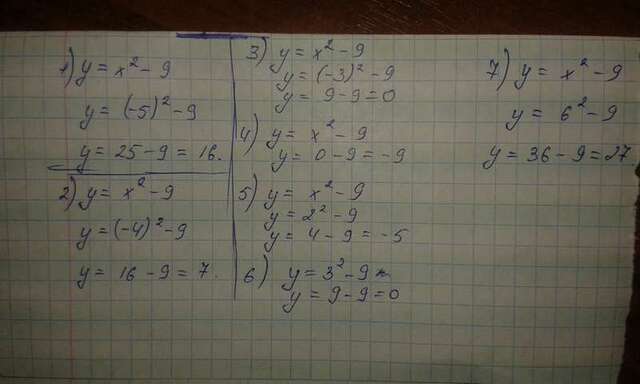 1) y = x² - 9
y = (-5)² - 9
y = 25 - 9 = 16.
2) y = x² - 9
y = (-4)² - 9
y = 16 - 9 = 7.
3) y = x² - 9
y = (-3)² - 9
y = 9 - 9 = 0
4) y = x² - 9
y = 0 - 9 = -9
5) y = x² - 9
y = 2² - 9
y = 4 - 9 = -5
6) y = 3² - 9
y = 9 - 9 = 0
7) y = x² - 9
y = 6² - 9
y = 36 - 9 = 27.